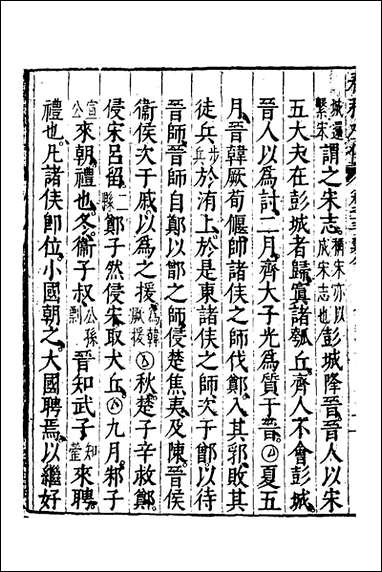 城還繫宋謂之宋志。稱宋亦以成宋志也彭城降晉。晉人以宋
五大夫在彭城者歸。寘諸瓠丘。齊人不會彭城。
晉人以為討。二月。齊大子光為質于晉。夏五
月。晉韓厥荀偃帥諸侯之師伐鄭。入其郛。敗其
徒兵步兵於洧上。於是東諸侯之師。次于鄫。以待
晉師。晉師自鄭以鄫之師。侵楚焦夷。及陳。晉侯
衛侯次于戚。以為之援為韓厥援秋。楚子辛救鄭。
侵宋呂留。二縣鄭子然侵宋。取犬丘。九月。邾子
宣公來朝。禮也。冬。衛子叔公孫剽晉知武子知罃來聘。
禮也。凡諸侯即位。小國朝之。大國聘焉。以繼好